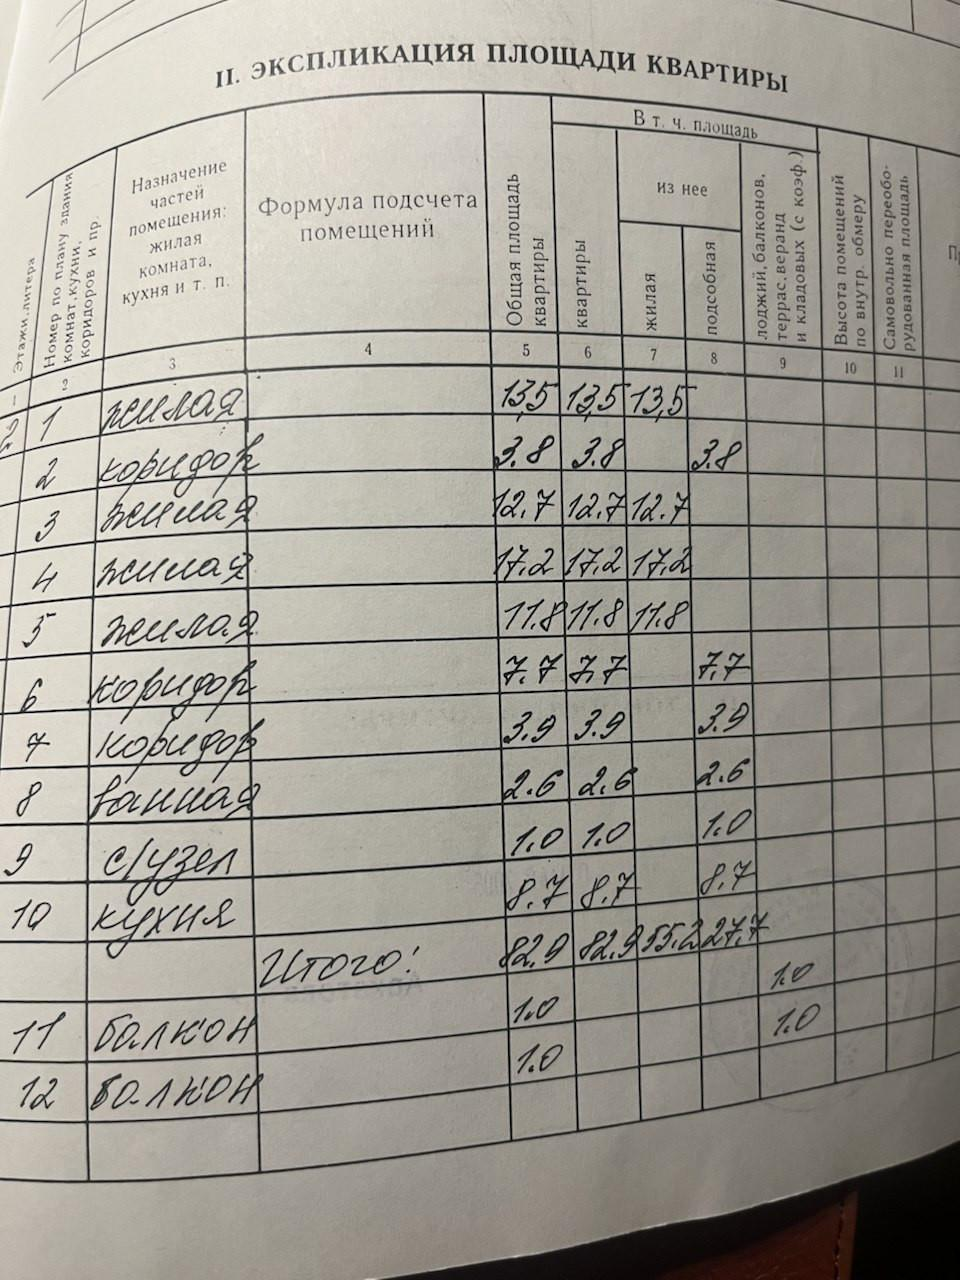 II. ЭКСПЛИКАЦИЯ ПЛОЩАДИ КВАРТИРЫ
Этажи, литера
Номер по плану здания
комнат, кухни,
коридоров и пр.
Назначение
частей
помещения:
жилая
комната,
кухня и т. п.
Формула подсчета
помещений
Общая площадь
квартиры
В т. ч. площадь
квартиры
из нее
жилая
подсобная
лоджий, балконов,
террас, веранд
и кладовых (с коэф.)
Высота помещений
по внутр. обмеру
Самовольно переобо-
рудованная площадь
1 2 3 4 5 6 7 8 9 10 11
1 жилая 13,5 13,5 13,5
2 коридор 3.8 3.8 3.8
3 жилая 12.7 12.7 12.7
4 жилая 17.2 17.2 17.2
5 жилая 11.8 11.8 11.8
6 коридор 7.7 7.7 7.7
7 коридор 3.9 3.9 3.9
8 ванная 2.6 2.6 2.6
9 с/узел 1.0 1.0 1.0
10 кухня 8.7 8.7 8.7
Итого: 82.9 82.9 55.2 27.7
11 балкон 1.0 1.0
12 балкон 1.0 1.0